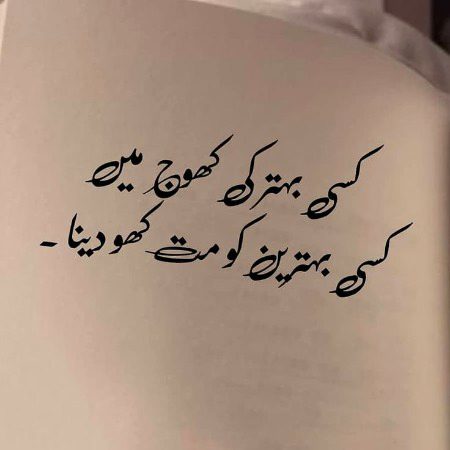 کسی بہتر کی کھوج میں
کسی بہترین کو مت کھو دینا ۔